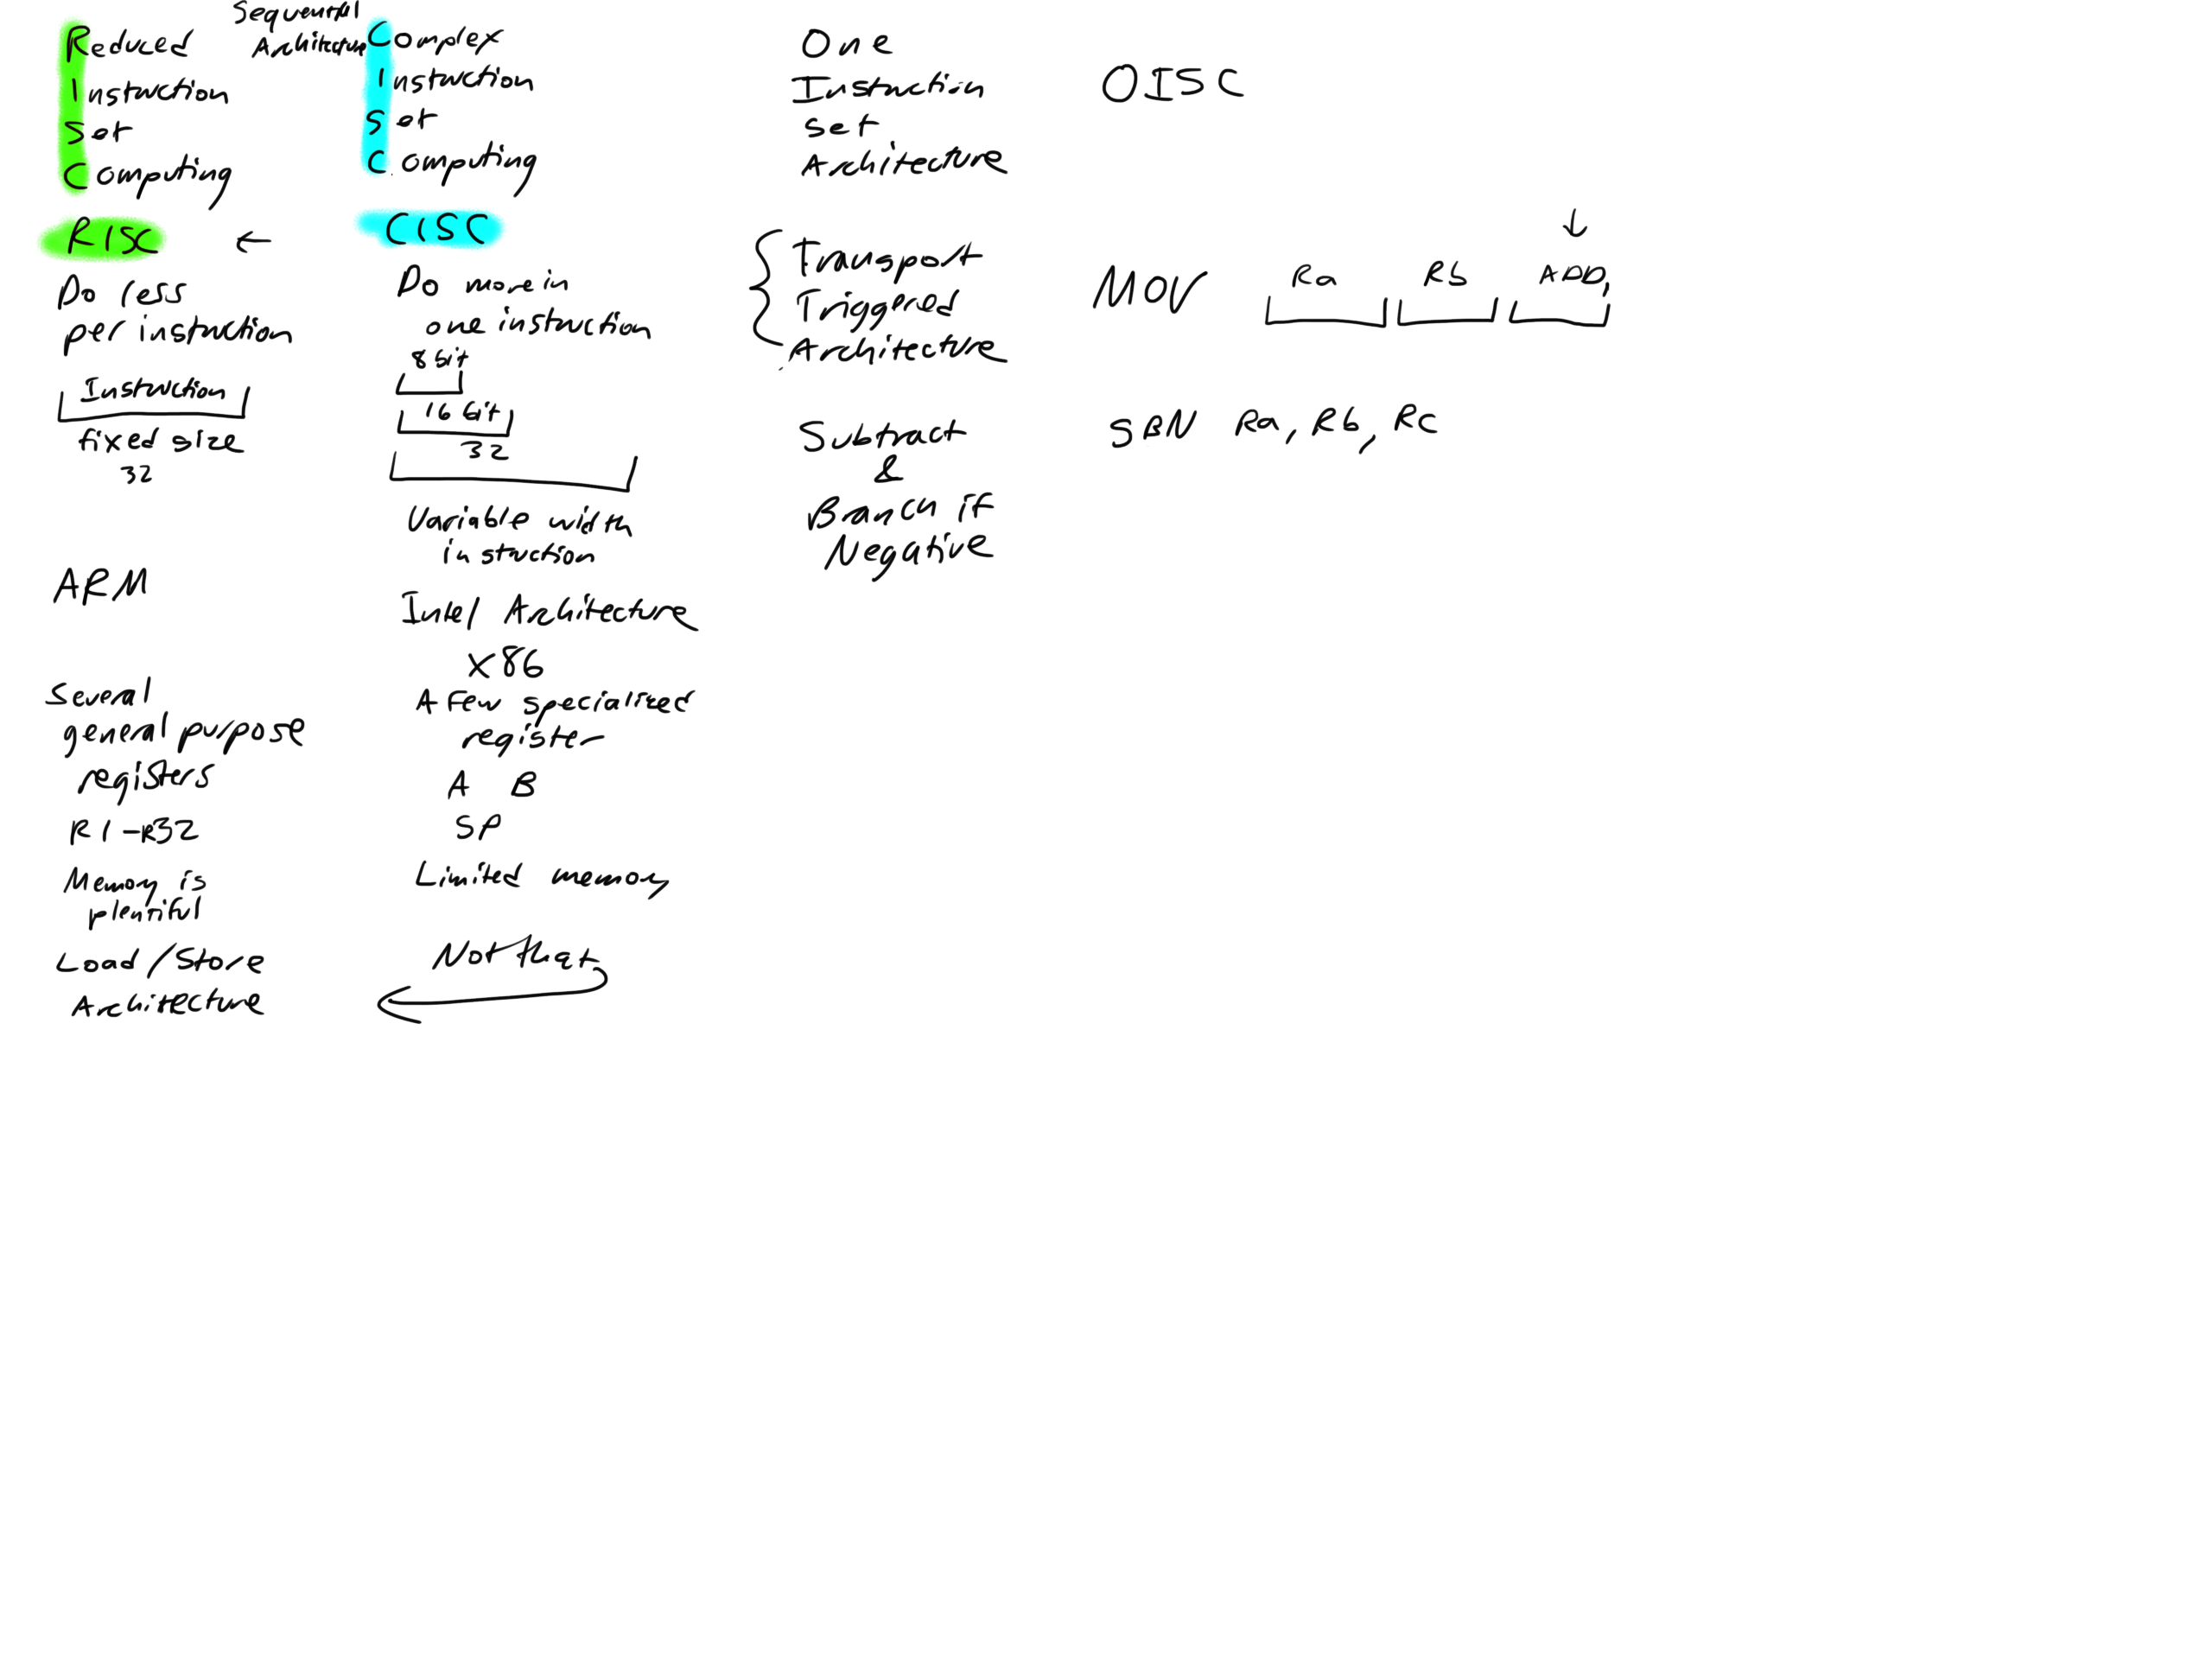 Reduced
Instruction
Set
Computing
RISC ←
Do less
per instruction
Instruction
fixed size
32
ARM
Several
general purpose
registers
R1-R32
Memory is
plentiful
Load/Store
Architecture
Sequential
Architecture
Complex
Instruction
Set
Computing
CISC
Do more in
one instruction
8 bit
16 bit
32
Variable width
instruction
Intel Architecture
X86
A Few specialized
register
A B
SP
Limited memory
Not that
One
Instruction
Set
Architecture
OISC
Transport
Triggered
Architecture
MOV Ra Rb ADD,
↓
Subtract
&
Branch if
Negative
SBN Ra, Rb, Rc